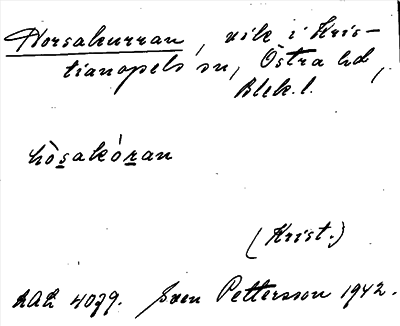 Horsakurran, vik i Kris-
tianopels sn, Östra hd,
Blek. l.
hòsakóran
(Krist.)
LAL 4079. Sven Pettersson 1942.